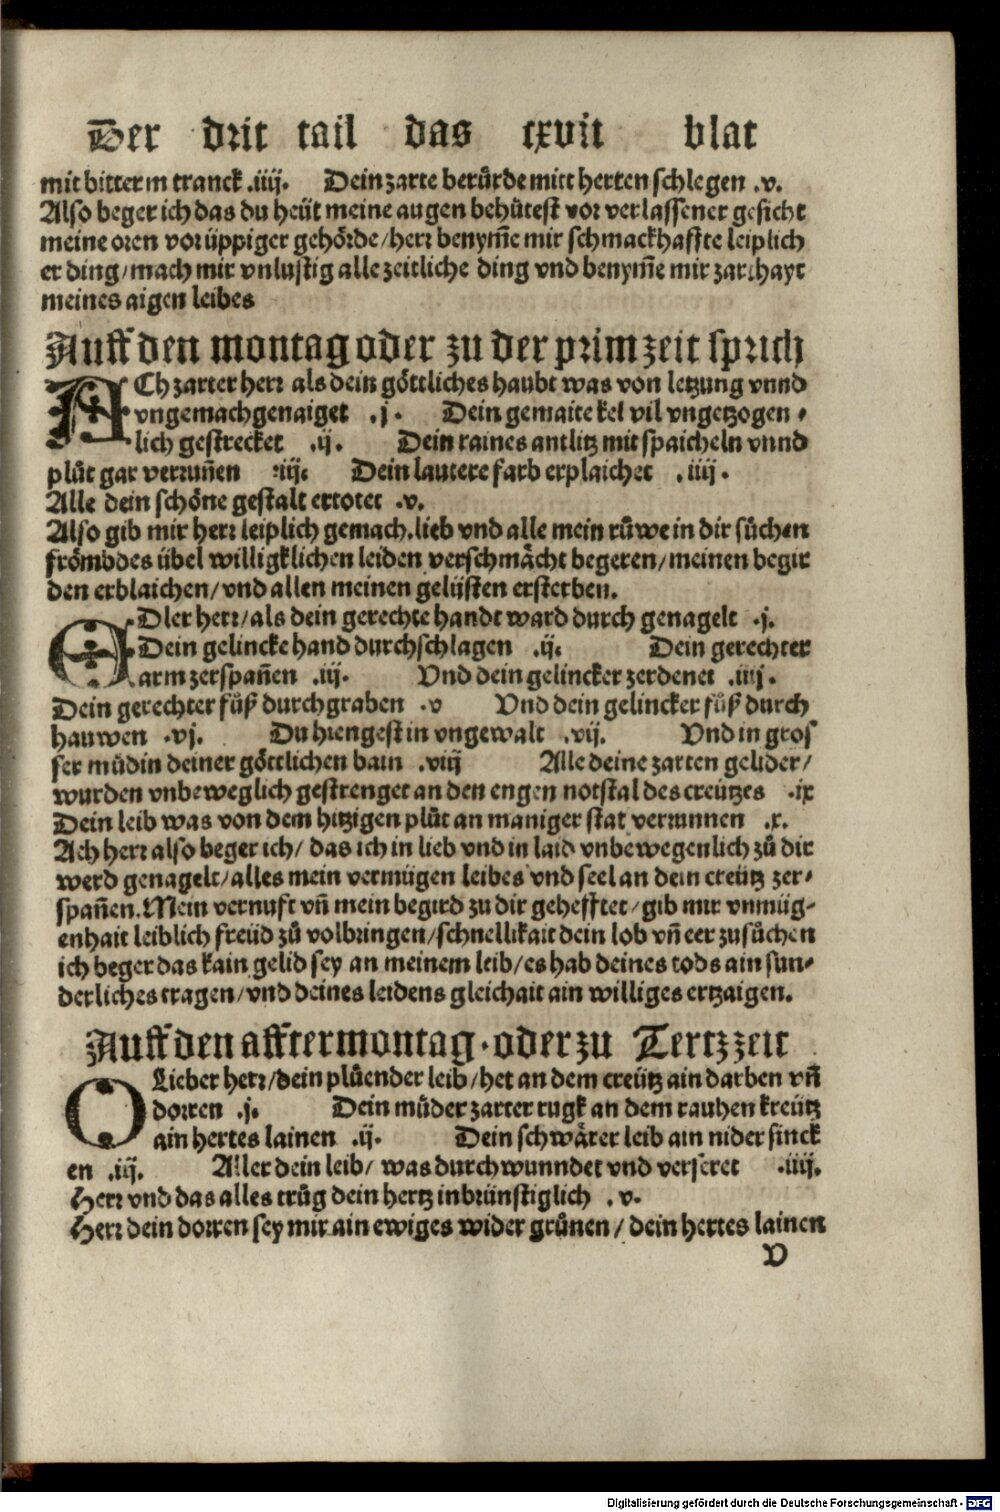 Der drit tail das cxvii blat
mit bitterm tranck .iiij. Dein zarte berůrde mitt herten schlegen .v.
Also beger ich das du heüt meine augen behůtest vor verlassener gesicht
meine oren vor üppiger gehörde/herr benym̄e mir schmackhaffte leiplich
er ding/mach mir vnlustig alle zeitliche ding vnd benym̄e mir zarthayt
meines aigen leibes
Auff den montag oder zu der prim zeit sprich
ACh zarter herr als dein göttliches haubt was von letzung vnnd
vngemach genaiget .j. Dein gemaite kel vil vngetzogen-
lich gestrecket .ij. Dein raines antlitz mit spaicheln vnnd
plůt gar verrun̄en .iij. Dein lautere farb erplaichet .iiij.
Alle dein schöne gestalt ertötet .v.
Also gib mir herr leiplich gemach.lieb vnd alle mein růwe in dir sůchen
frömbdes übel willigklichen leiden verschmächt begeren/meinen begir
den erblaichen/vnd allen meinen gelüsten ersterben.
EDler herr/als dein gerechte handt ward durch genagelt .j.
Dein gelincke hand durchschlagen .ij. Dein gerechter
arm zerspan̄en .iij. Vnd dein gelincker zerdenet .iiij.
Dein gerechter fůß durchgraben .v Vnd dein gelincker fůß durch
hauwen .vj. Du hiengest in vngewalt .vij. Vnd in gros
ser müdin deiner göttlichen bain .viij Alle deine zarten gelider/
wurden vnbeweglich gestrenget an den engen notstal des creützes .ix
Dein leib was von dem hitzigen plůt an maniger stat verrunnen .x.
Ach herr also beger ich/ das ich in lieb vnd in laid vnbewegenlich zů dir
werd genagelt/alles mein vermügen leibes vnd seel an dein creütz zer-
span̄en.Mein vernuft vn̄ mein begird zu dir gehefftet/gib mir vnmüg-
enhait leiblich freüd zů volbringen/schnellikait dein lob vn̄ eer zusůchen
ich beger das kain gelid sey an meinem leib/es hab deines tods ain sun-
derliches tragen/vnd deines leidens gleichait ain williges ertzaigen.
Auff den afftermontag.oder zu Tertzzeit
OLieber herr/dein plůender leib/het an dem creütz ain darben vn̄
dorren .j. Dein müder zarter rugk an dem rauhen kreütz
ain hertes lainen .ij. Dein schwärer leib ain nider sinck
en .iij. Aller dein leib/ was durchwunndet vnd verseret .iiij.
Herr vnd das alles trůg dein hertz inbrünstiglich .v.
Herr dein dorren sey mir ain ewiges wider grůnen/ dein hertes lainen
V
Digitalisierung gefördert durch die Deutsche Forschungsgemeinschaft - DFG